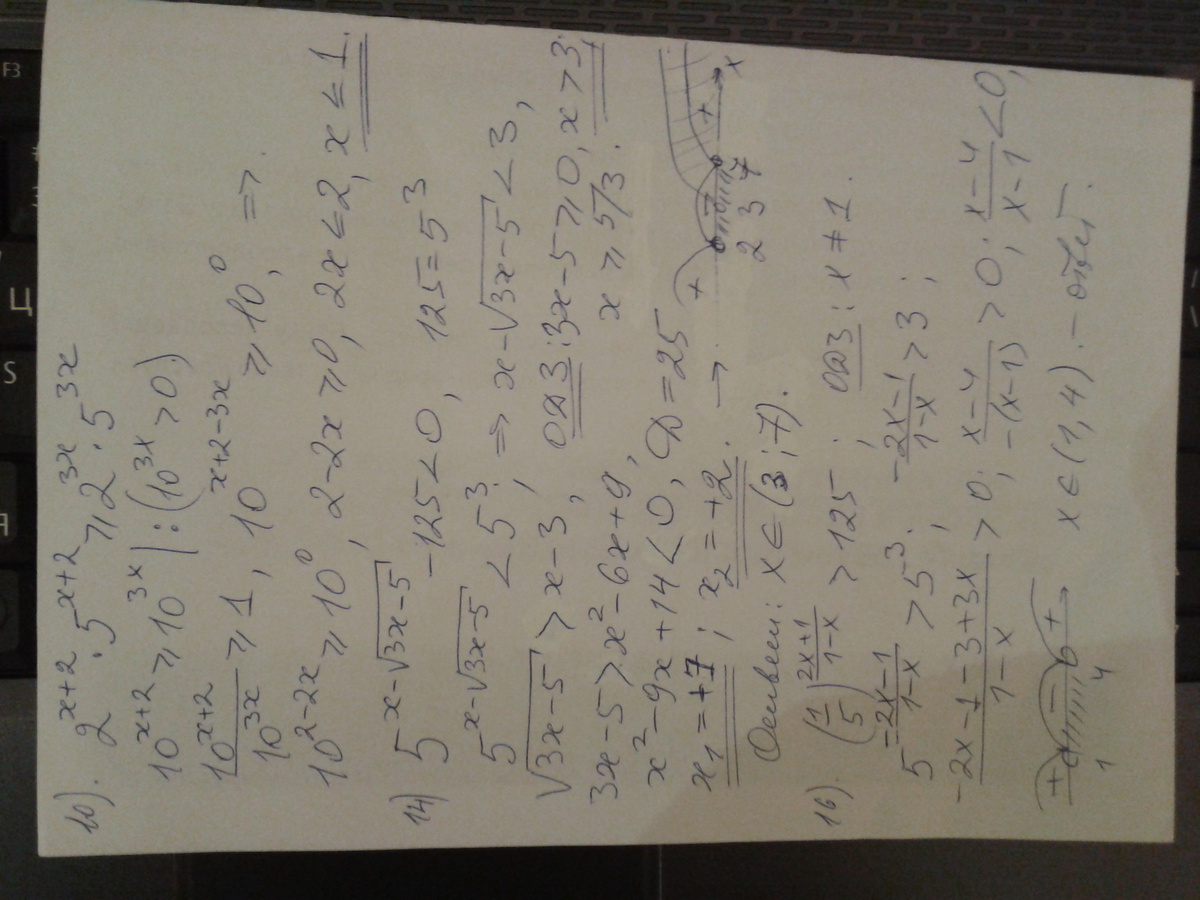 10). 2^{x+2} · 5^{x+2} ⩾ 2^{3x} · 5^{3x}
10^{x+2} ⩾ 10^{3x} | : (10^{3x} > 0)
10^{x+2}/10^{3x} ⩾ 1, 10^{x+2-3x} ⩾ 10^0, ⇒
10^{2-2x} ⩾ 10^0, 2-2x ⩾ 0, 2x ⩽ 2, x ⩽ 1.
14) 5^{x-√(3x-5)} - 125 < 0, 125 = 5^3
5^{x-√(3x-5)} < 5^3, ⇒ x-√(3x-5) < 3,
√(3x-5) > x-3, ОДЗ: 3x-5 ⩾ 0, x > 3
3x-5 > x²-6x+9, x ⩾ 5/3.
x²-9x+14 < 0, D = 25
x₁ = +7; x₂ = +2. → + - + x
2 3 7
Ответ: x ∈ (3; 7).
16). (1/5)^{(2x+1)/(1-x)} > 125; ОДЗ: x ≠ 1.
5^{(-2x-1)/(1-x)} > 5^3; (-2x-1)/(1-x) > 3;
(-2x-1-3+3x)/(1-x) > 0; (x-4)/(-(x-1)) > 0; (x-4)/(x-1) < 0,
+ - +
1 4 x ∈ (1, 4). - ответ.